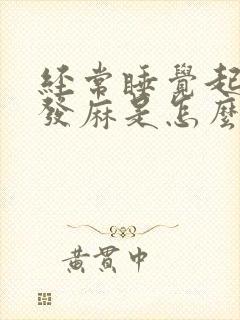 经常睡覺起
發麻是怎麼
黃貫中